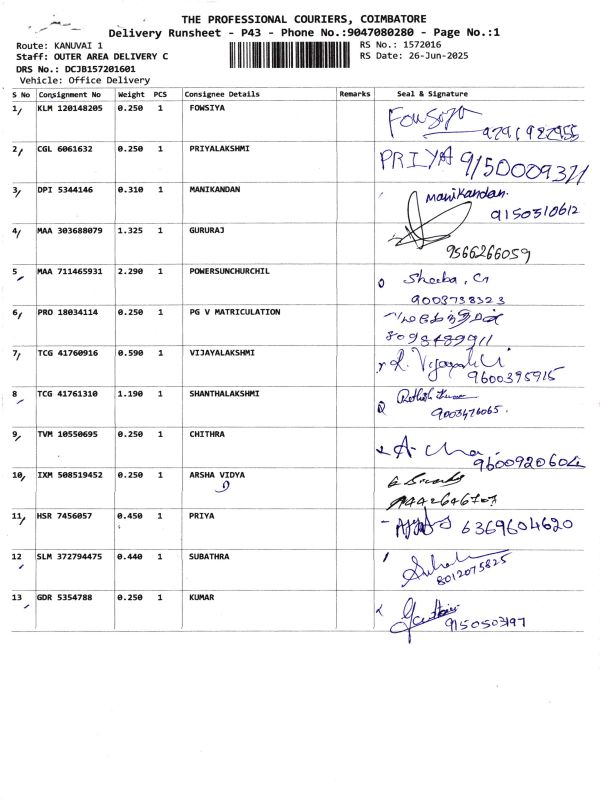 THE PROFESSIONAL COURIERS, COIMBATORE
Delivery Runsheet - P43 - Phone No.:9047080280 - Page No.:1
Route: KANUVAI 1
RS No.: 1572016
Staff: OUTER AREA DELIVERY C
RS Date: 26-Jun-2025
DRS No.: DCJB157201601
Vehicle: Office Delivery
S No Consignment No Weight PCS Consignee Details Remarks Seal & Signature
1 KLM 120148205 0.250 1 FOWSIYA Fowsiya
2 CGL 6061632 0.250 1 PRIYALAKSHMI PRIYA 9150009371
3 DPI 5344146 0.310 1 MANIKANDAN Manikandan. 9150310612
4 MAA 303688079 1.325 1 GURURAJ 9566266059
5 MAA 711465931 2.290 1 POWERSUNCHURCHIL Sheeba, 9003738323
6 PRO 18034114 0.250 1 PG V MATRICULATION
7 TCG 41760916 0.590 1 VIJAYALAKSHMI 9600395915
8 TCG 41761310 1.190 1 SHANTHALAKSHMI 9003476065.
9 TVM 10550695 0.250 1 CHITHRA 9600920604
10 IXM 508519452 0.250 1 ARSHA VIDYA
11 HSR 7456057 0.450 1 PRIYA 6369604620
12 SLM 372794475 0.440 1 SUBATHRA 8012075825
13 GDR 5354788 0.250 1 KUMAR 9150503197